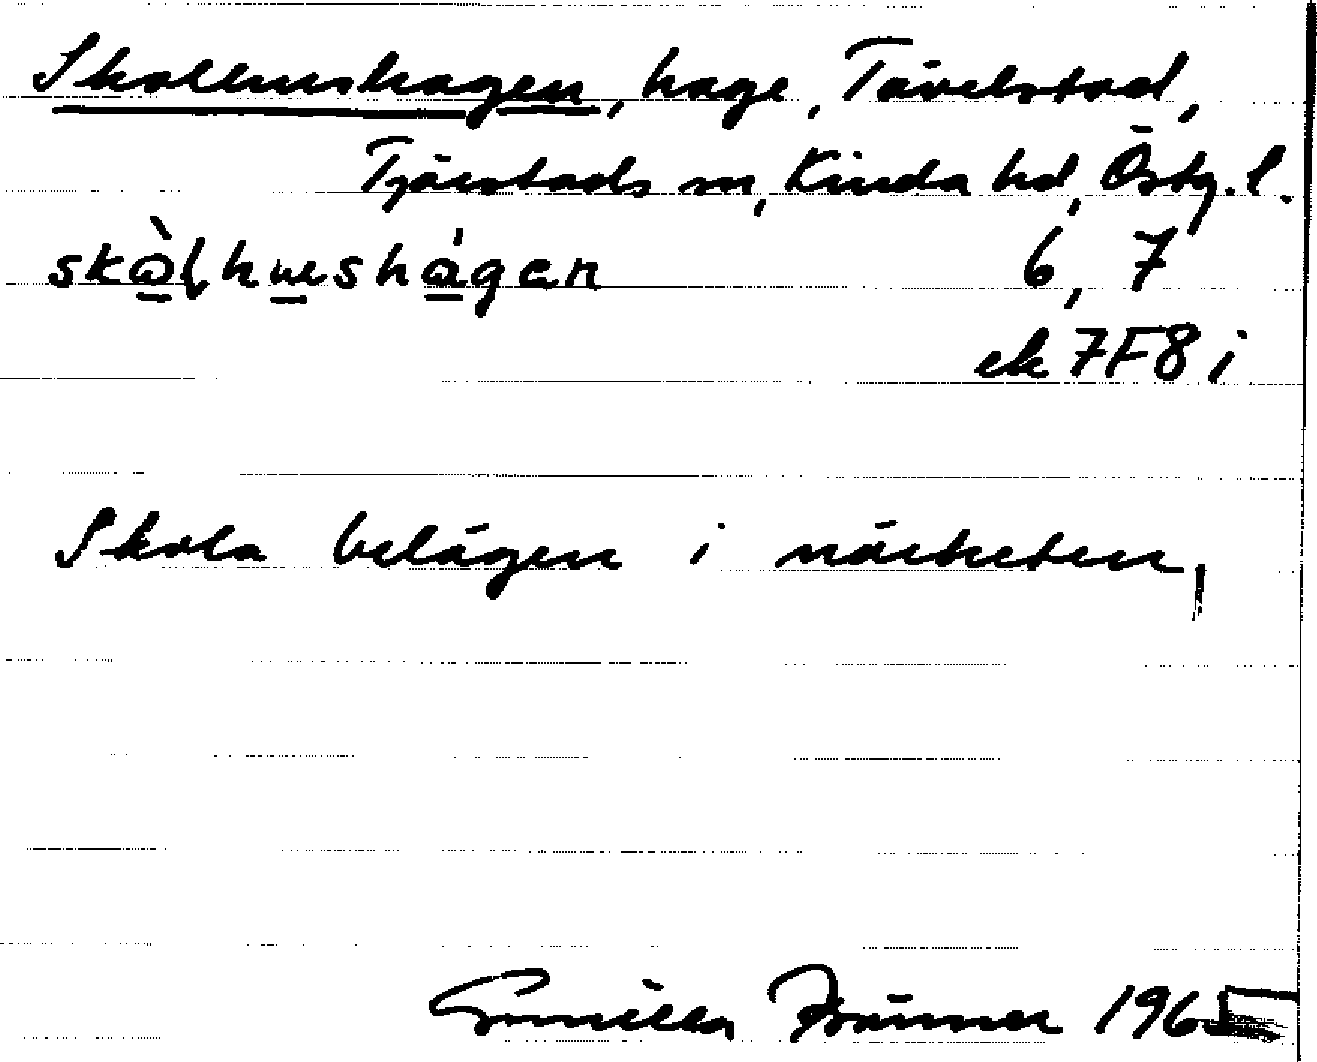 Skolhushagen, hage, Tävelstad,
Tjärstads sn, Kinda hd, Östg. l.
6, 7
ek 7F8 i
Skola belägen i närheten,
Gunilla Bränner 1965